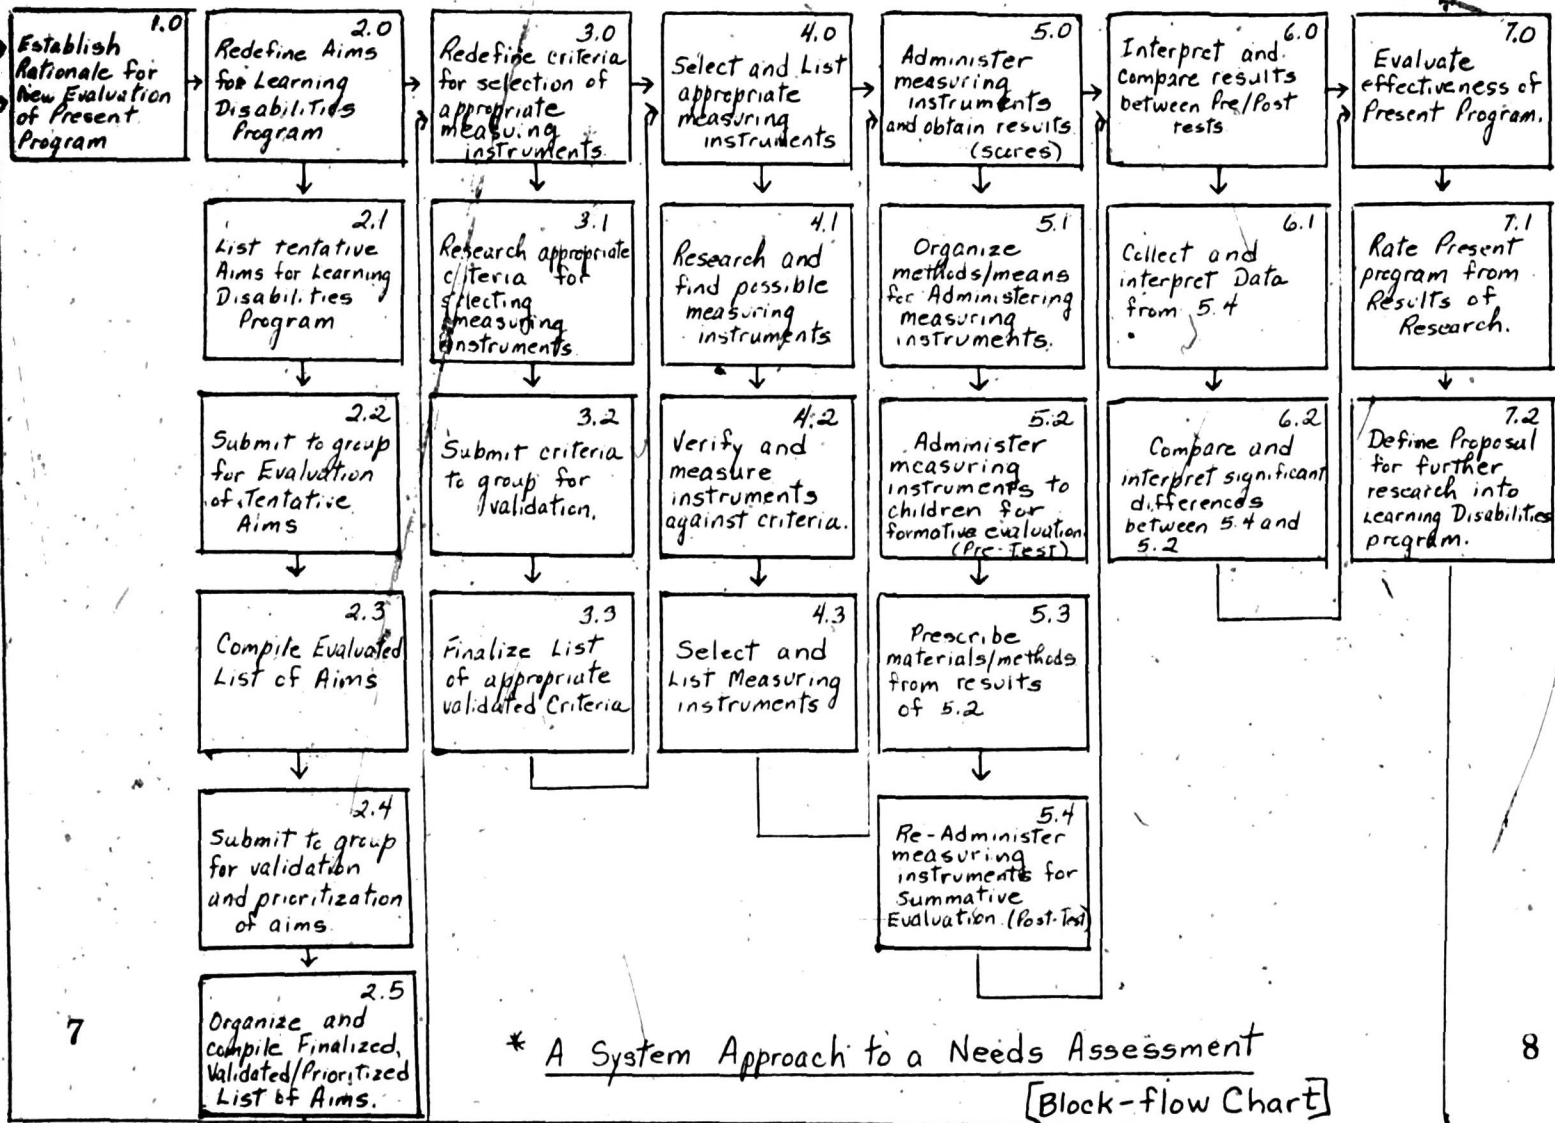 1.0
Establish
Rationale for
New Evaluation
of Present
Program
2.0
Redefine Aims
for Learning
Disabilities
Program
2.1
List tentative
Aims for Learning
Disabilities
Program
2.2
Submit to group
for Evaluation
of Tentative
Aims
2.3
Compile Evaluated
List of Aims
2.4
Submit to group
for validation
and prioritization
of aims.
2.5
Organize and
compile Finalized,
Validated/Prioritized
List of Aims.
3.0
Redefine criteria
for selection of
appropriate
measuing
instruments.
3.1
Research appropriate
criteria for
selecting
measuring
instruments.
3.2
Submit criteria
to group for
validation.
3.3
Finalize List
of appropriate
validated Criteria
4.0
Select and List
appropriate
measuring
instruments
4.1
Research and
find possible
measuring
instruments
4.2
Verify and
measure
instruments
against criteria.
4.3
Select and
List Measuring
instruments
5.0
Administer
measuring
instruments
and obtain results.
(scores)
5.1
Organize
methods/means
for Administering
measuring
instruments.
5.2
Administer
measuring
instruments to
children for
formative evaluation
(Pre-Test)
5.3
Prescribe
materials/methods
from results
of 5.2
5.4
Re-Administer
measuring
instruments for
Summative
Evaluation. (Post-Test)
6.0
Interpret and
compare results
between Pre/Post
tests
6.1
Collect and
interpret Data
from 5.4
6.2
Compare and
interpret significant
differences
between 5.4 and
5.2
7.0
Evaluate
effectiveness of
Present Program.
7.1
Rate Present
program from
Results of
Research.
7.2
Define Proposal
for further
research into
Learning Disabilities
program.
7
* A System Approach to a Needs Assessment
[Block-flow Chart]
8